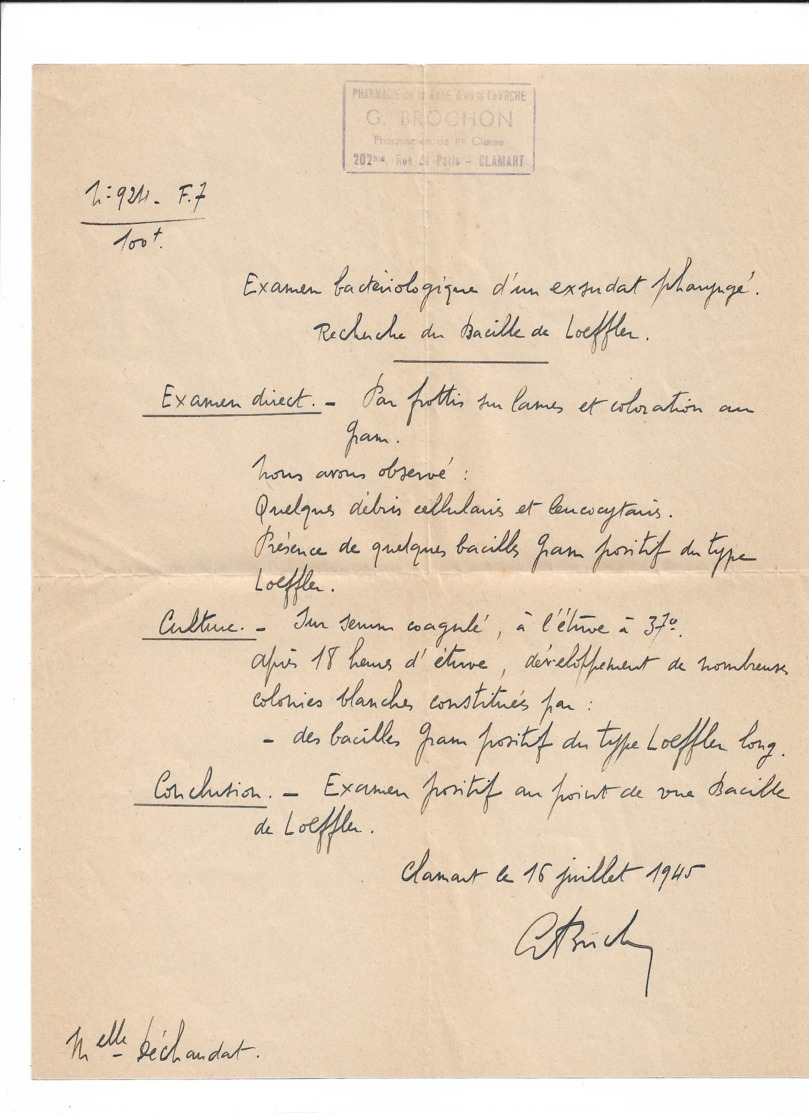 PHARMACIE de la GARE & de la FOURCHE
G. BROCHON
Pharmacien de 1re Classe
202bis, Rue de Paris - CLAMART
N° 924 - F.7
100t.
Examen bactériologique d'un exsudat pharyngé.
Recherche du Bacille de Loeffler.
Examen direct. - Par frottis sur lames et coloration au
gram.
Nous avons observé :
Quelques débris cellulaires et leucocytaires.
Présence de quelques bacilles Gram positif du type
Loeffler.
Culture. - Sur serum coagulé, à l'étuve à 37°.
après 18 heures d'étuve, développement de nombreuses
colonies blanches constituées par :
- des bacilles Gram positif du type Loeffler long.
Conclusion. - Examen positif au point de vue Bacille
de Loeffler.
Clamart le 16 juillet 1945
Melle Déchaudat.